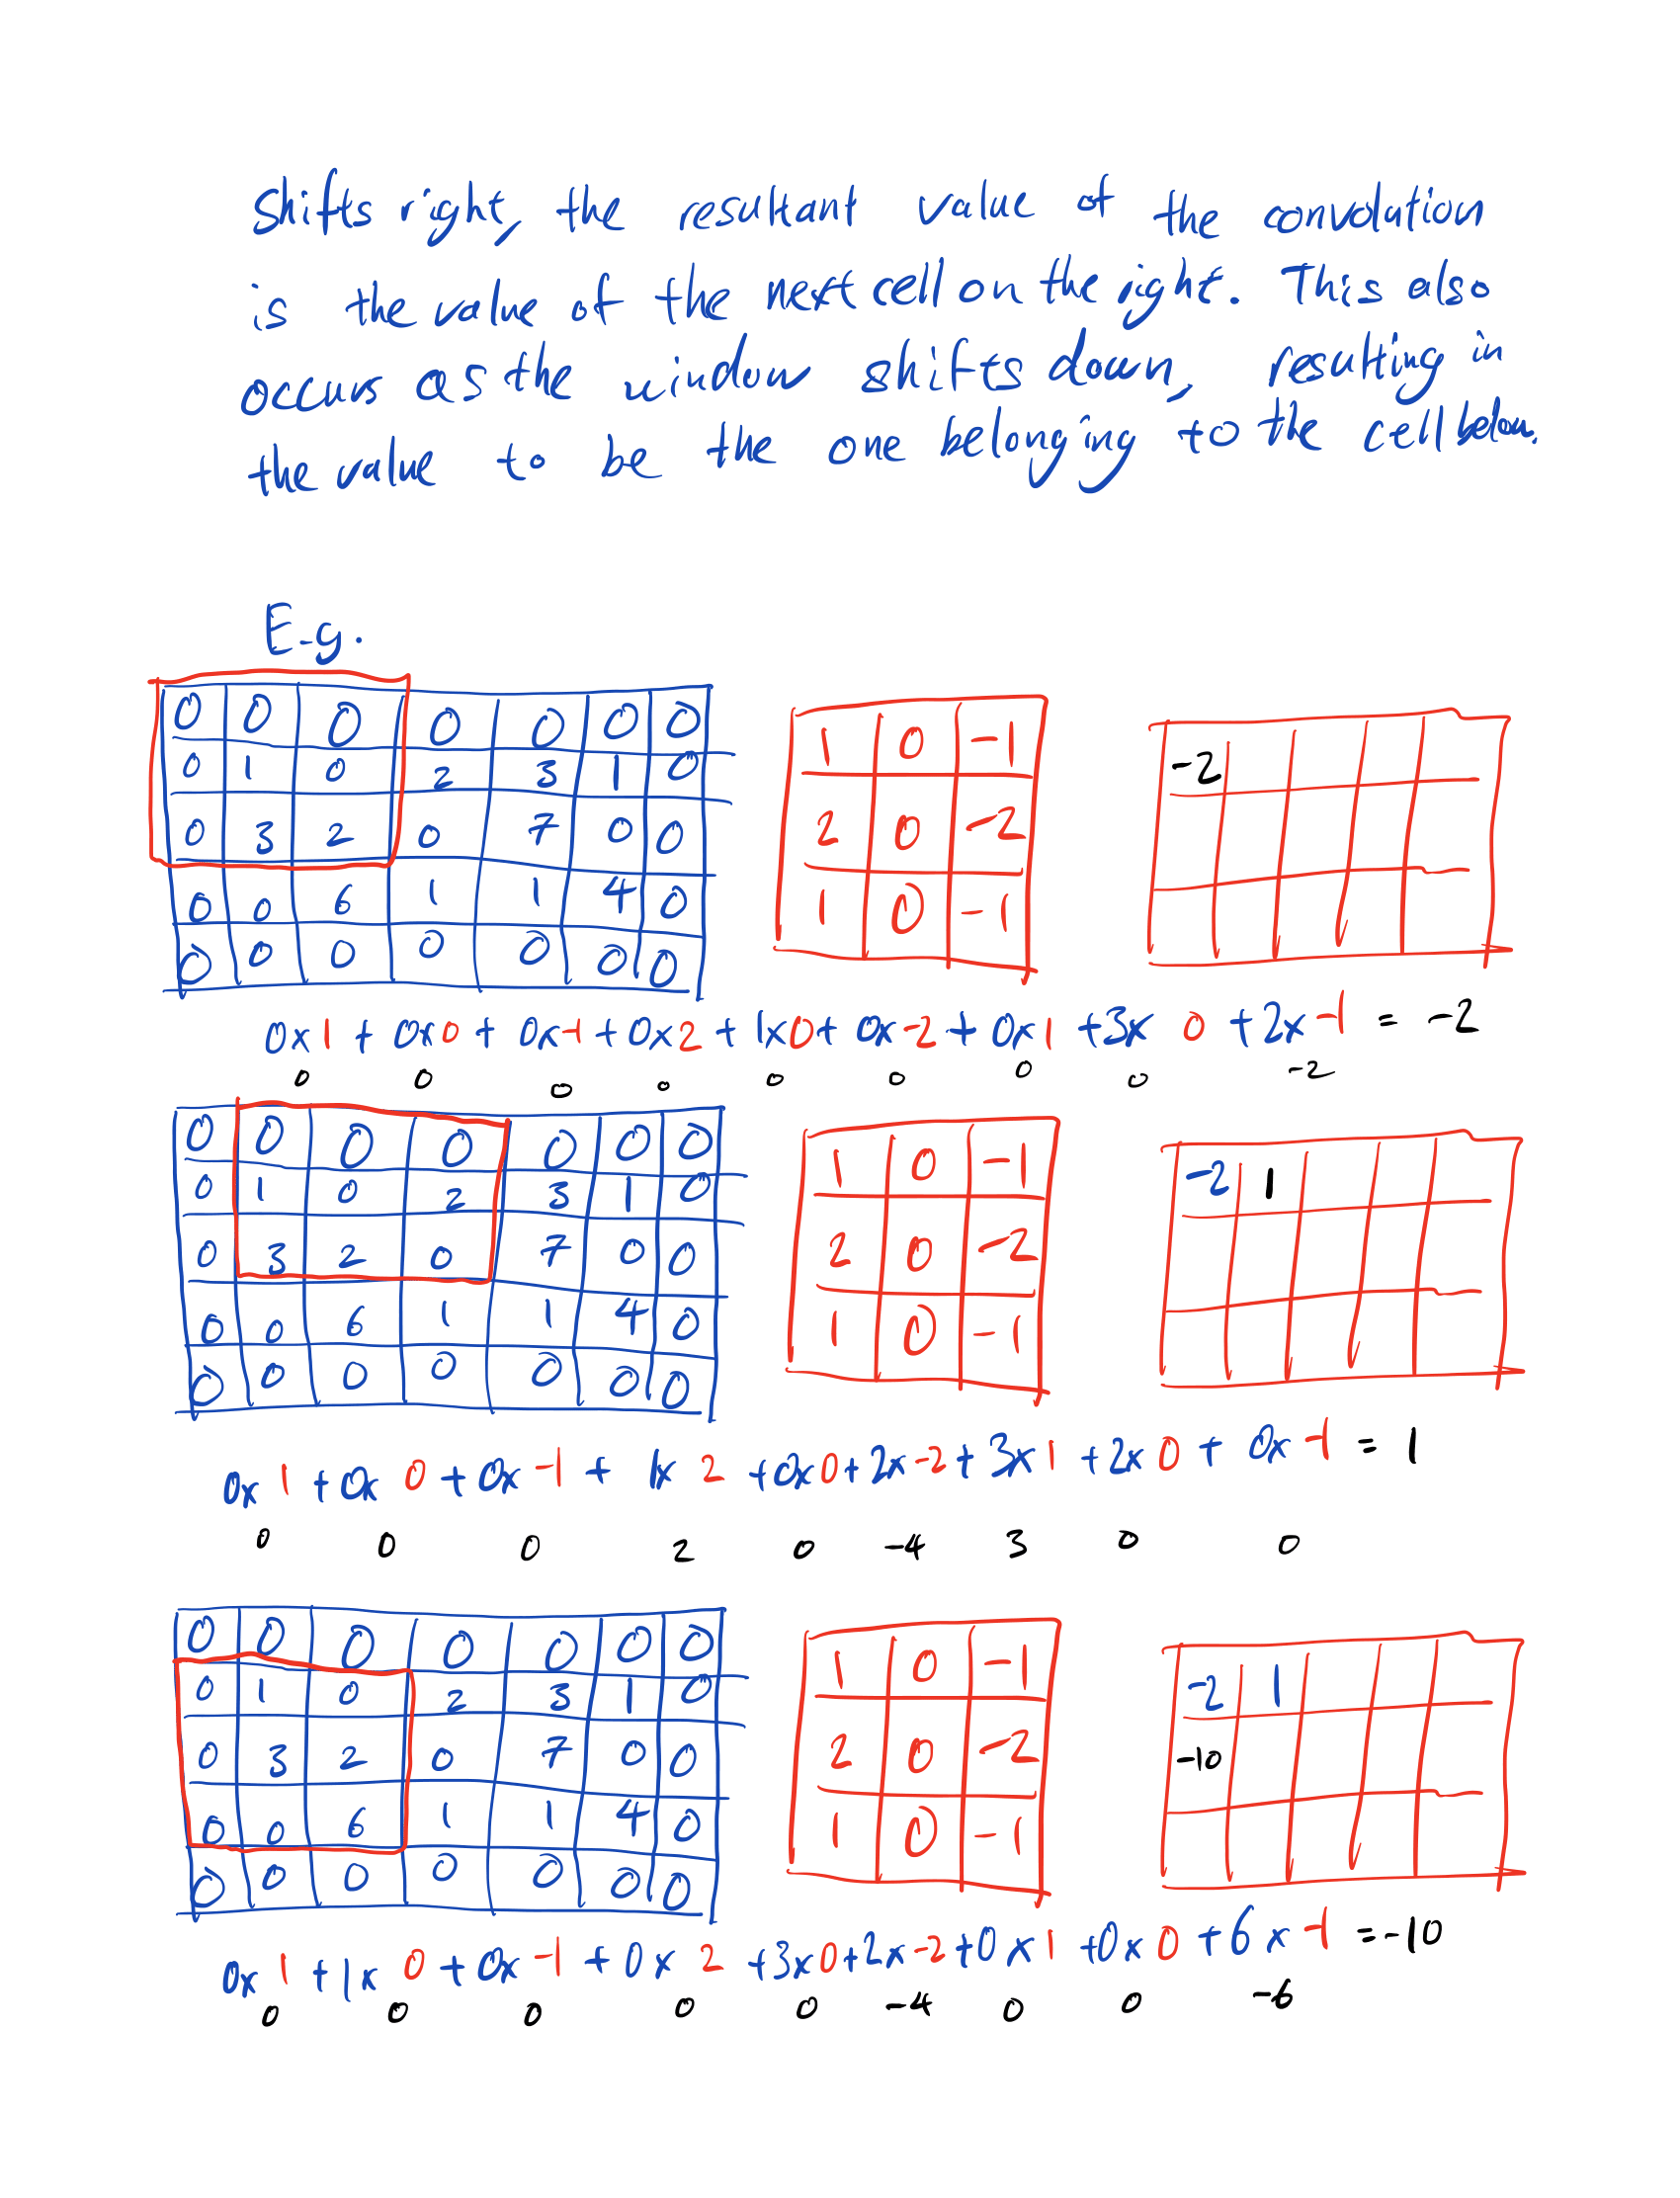 shifts right, the resultant value of the convolution
is the value of the next cell on the right. This also
occurs as the window shifts down, resulting in
the value to be the one belonging to the cell below.
E-g.
0 0 0 0 0 0 0
0 1 0 2 3 1 0
0 3 2 0 7 0 0
0 0 6 1 1 4 0
0 0 0 0 0 0 0
1 0 -1
2 0 -2
1 0 -1
-2
0x1 + 0x0 + 0x-1 + 0x2 + 1x0 + 0x-2 + 0x1 + 3x0 + 2x-1 = -2
0 0 0 0 0 0 0 0 -2
0 0 0 0 0 0 0
0 1 0 2 3 1 0
0 3 2 0 7 0 0
0 0 6 1 1 4 0
0 0 0 0 0 0 0
1 0 -1
2 0 -2
1 0 -1
-2 1
0x1 + 0x0 + 0x-1 + 1x2 + 0x0 + 2x-2 + 3x1 + 2x0 + 0x-1 = 1
0 0 0 2 0 -4 3 0 0
0 0 0 0 0 0 0
0 1 0 2 3 1 0
0 3 2 0 7 0 0
0 0 6 1 1 4 0
0 0 0 0 0 0 0
1 0 -1
2 0 -2
1 0 -1
-2 1
-10
0x1 + 1x0 + 0x-1 + 0x2 + 3x0 + 2x-2 + 0x1 + 0x0 + 6x-1 = -10
0 0 0 0 0 -4 0 0 -6